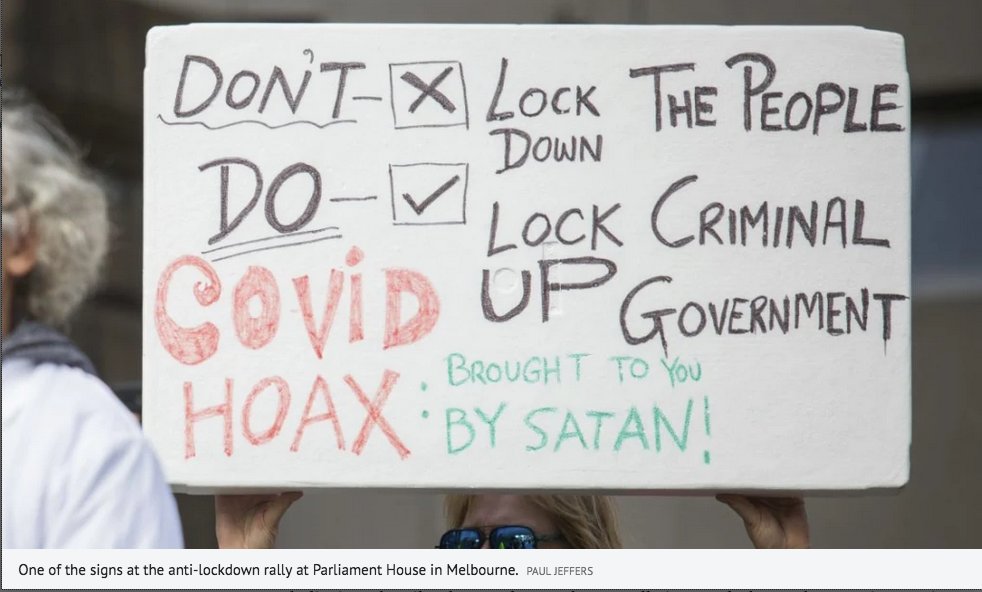 DON'T - LOCK DOWN THE PEOPLE
DO - LOCK UP CRIMINAL GOVERNMENT
COVID HOAX: BROUGHT TO YOU BY SATAN!
One of the signs at the anti-lockdown rally at Parliament House in Melbourne. PAUL JEFFERS